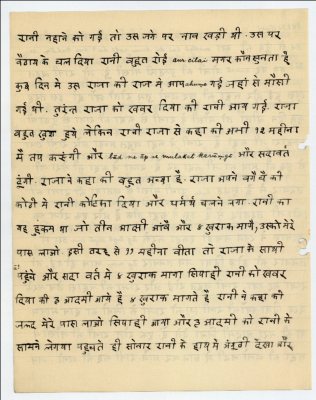 रानी नहाने को गई तो उस जगे पर नाव खड़ी थी. उस पर
बैठाय के चल दिया रानी बहुत रोई aur cilai मगर कौन सुनता है
कुछ दिन में उस राजा की राज में आप गई जहां से मौसी
गई थी. तुरन्त राजा को खबर दिया की रानी आय गई. राजा
बहुत खुश हुये लेकिन रानी राजा से कहा की अभी १२ महीना
मैं तप करूंगी और bad me ap se mulakat karungi और सदावर्त
दूंगी. राजा ने कहा की बहुत अच्छा है. राजा अपने बगैचे की
कोठी में रानी को टिका दिया और धर्मार्थ चलने लगा. रानी का
यह हुकम था जो तीन आदमी आवें और ४ खुराक मागे, उसको मेरे
पास लाओ. इसी तरह से ११ महीना बीता तो राजा के साथी
पहुंचे और सदा वर्त में ४ खुराक मागा सिपाही रानी को खबर
दिया की ३ आदमी आगे है ४ खुराक मागते है रानी ने कहा की
जल्द मेरे पास लाओ सिपाही आया और ३ आदमी को रानी के
सामने लेगया पहुचते ही सोनार रानी के हाथ में अंगूठी देखा और